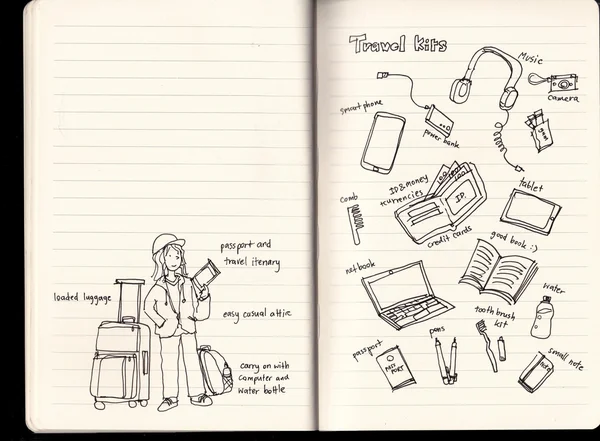 passport and
travel itenary
loaded luggage
easy casual attire
carry on with
computer and
water bottle
Travel Kits
Music
camera
smart phone
power bank
gum
ID & money
+currencies
ID
credit cards
comb
tablet
good book :)
netbook
water
tooth brush
kit
passport
PASS
PORT
pens
small note
note